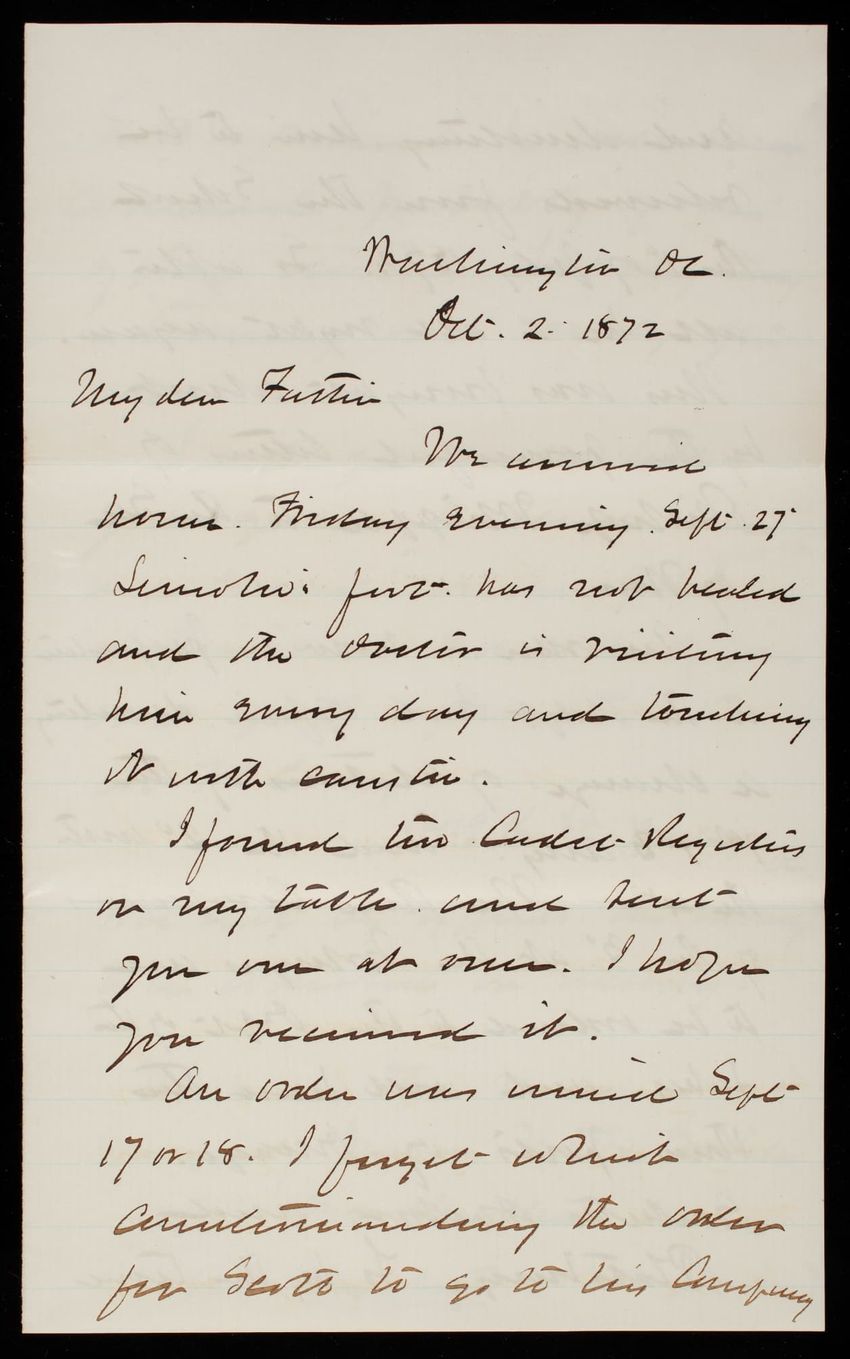 Washington DC.
Oct. 2. 1872
My dear Father
We arrived
home Friday evening Sept. 27
Lincoln's foot has not healed
and the doctor is visiting
him every day and touching
it with caustic.
I found two Cadet Registers
on my table and sent
you one at once. I hope
you received it.
An order was issued Sept
17 or 18. I forget which
countermanding the order
for Scott to go to his Company